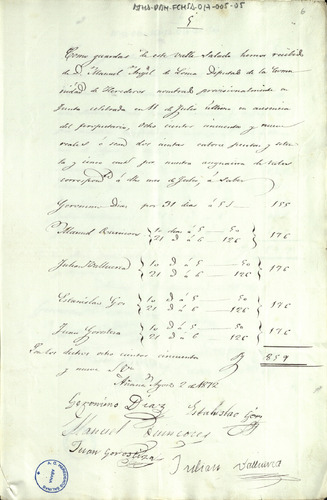 ATHA-DAH-FCHSA-017-005-05
6
5
Como guardas de este valle Salado hemos recibido
de D. Manuel Angel de Diputado de la Comu
nidad de Herederos nombrado provisionalmente en
Junta celebrada en 11 de Julio último en ausencia
del propietario, ocho cientos cincuenta y nueve
reales ó sean dos cientas catorce pesetas y seten
ta y cinco cent^s por nuestra asignacion de
correspond^te á dho mes de Julio, á saber
Geronimo Diaz por 31 dias á 5 155
Manuel Quincoces 10 dias á 5 50
21 D á 6 126 176
Julian Valluerca 10 D á 5 50
21 D á 6 126 176
Estanislao Goy 10 D á 5 50
21 D á 6 126 176
Juan Gorostiza 10 D á 5 50
21 D á 6 126 176
Son los dichos ocho cientos cincuenta 859
y nueve
Añana Agosto 2 de 1872
Geronimo Díaz Estanislao Goy
Manuel Quincoces
Juan Gorostiza Julian Valluerca